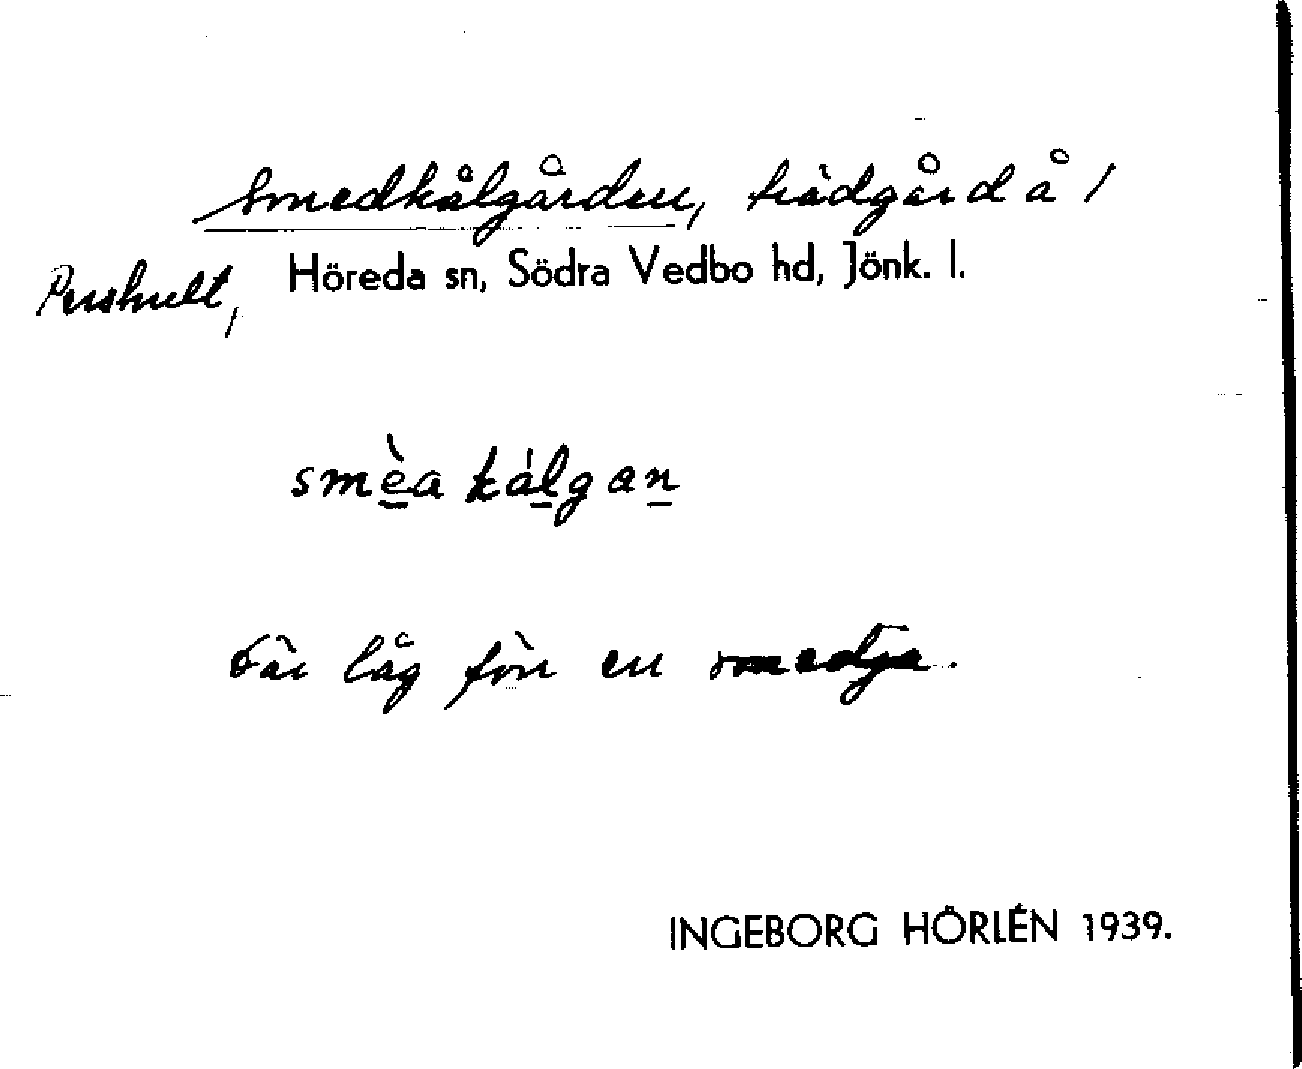 Smedkålgården, trädgård å 1
Pershult, Höreda sn, Södra Vedbo hd, Jönk. l.
smèa kålgan
Där låg förr en smedja.
INGEBORG HÖRLÉN 1939.